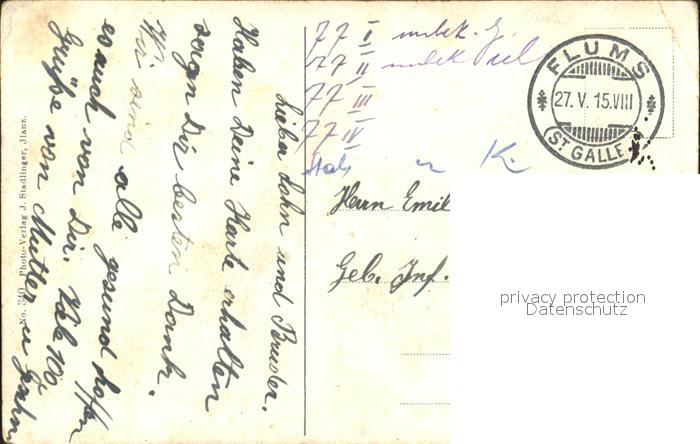 Lieber Sohn und Bruder.
Haben Deine Karte erhalten
sagen Dir besten Dank.
Wir sind alle gesund hoffen
es auch von Dir.
Grüße von Mutter u
No. 340 Photo-Verlag J. Stadlinger, Jlanz.
77 I unbek.
77 II unbek
77 III
77 IV
Stab u K.
FLUMS
27. V. 15. VIII
(ST GALLE
Herrn Emil
Geb. Inf.
privacy protection
Datenschutz